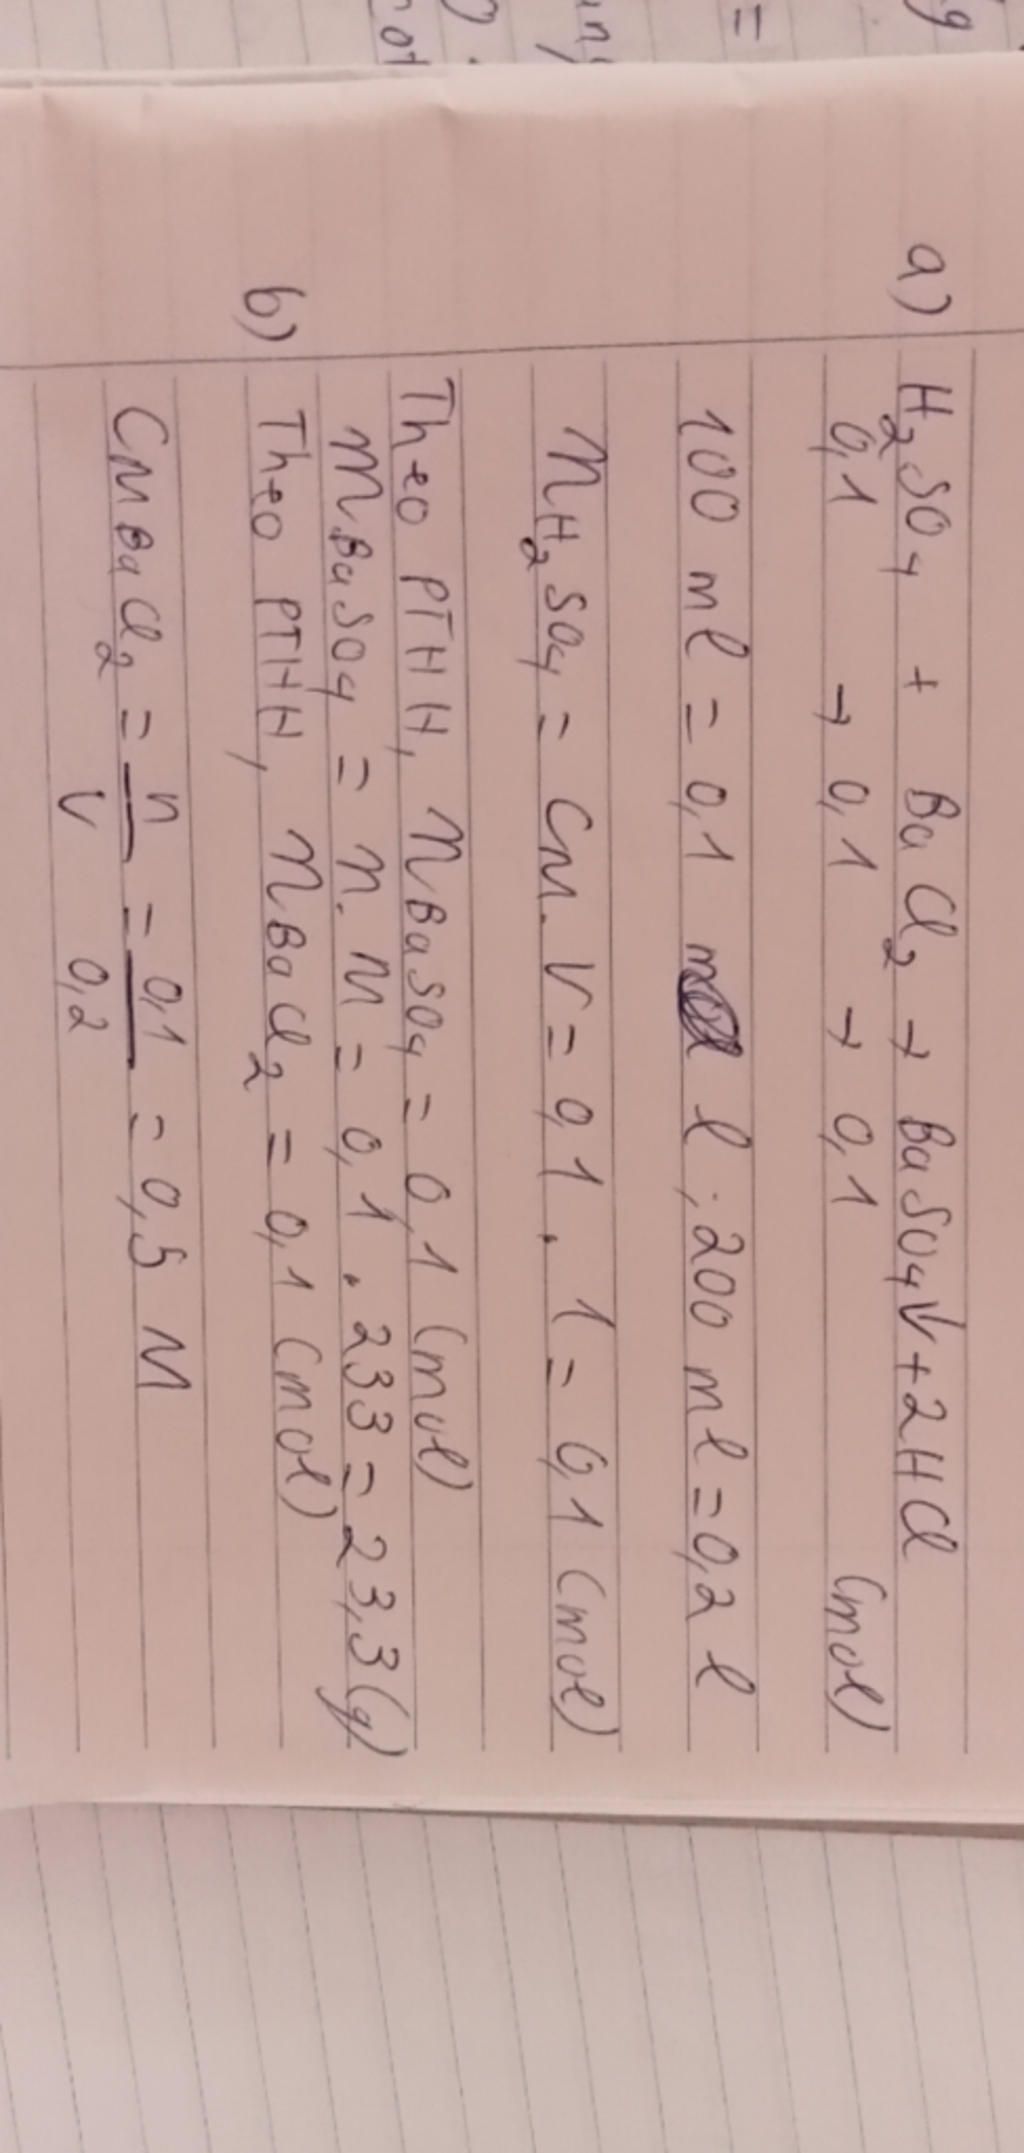 a) H₂SO₄ + BaCl₂ → BaSO₄↓ + 2HCl
0,1 → 0,1 → 0,1 (mol)
100 ml = 0,1 l ; 200 ml = 0,2 l
nH₂SO₄ = CM. V = 0,1 . 1 = 0,1 (mol)
Theo PTHH, nBaSO₄ = 0,1 (mol)
mBaSO₄ = n. M = 0,1 . 233 = 23,3 (g)
b) Theo PTHH, nBaCl₂ = 0,1 (mol)
CMBaCl₂ = n/V = 0,1/0,2 = 0,5 M